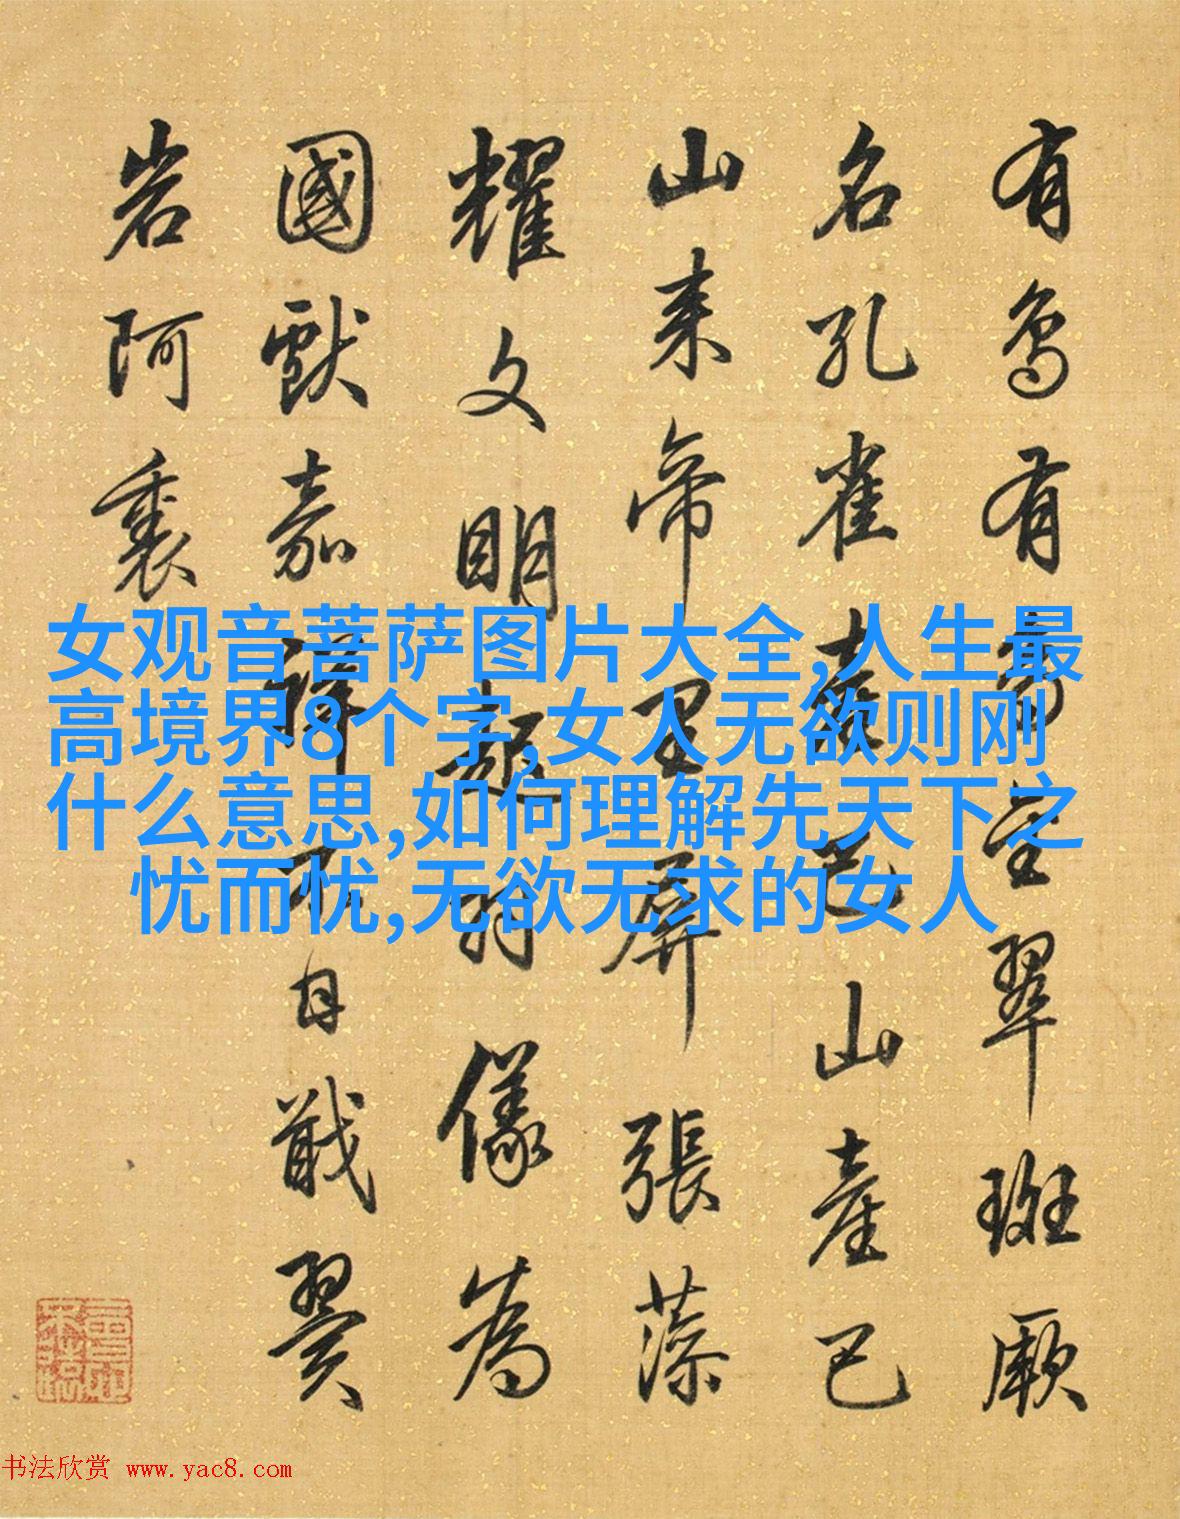 有鳥有鳥金翠斑厥
名孔雀產巴山產巴
山来帝里屏張藻
耀文明翹羽儀為
國獻嘉祥不日戢翼
岩阿裏
女观音菩萨图片大全,人生最
高境界8个字,女人无欲则刚
什么意思,如何理解先天下之
忧而忧,无欲无求的女人
书法欣赏 www.yac8.com